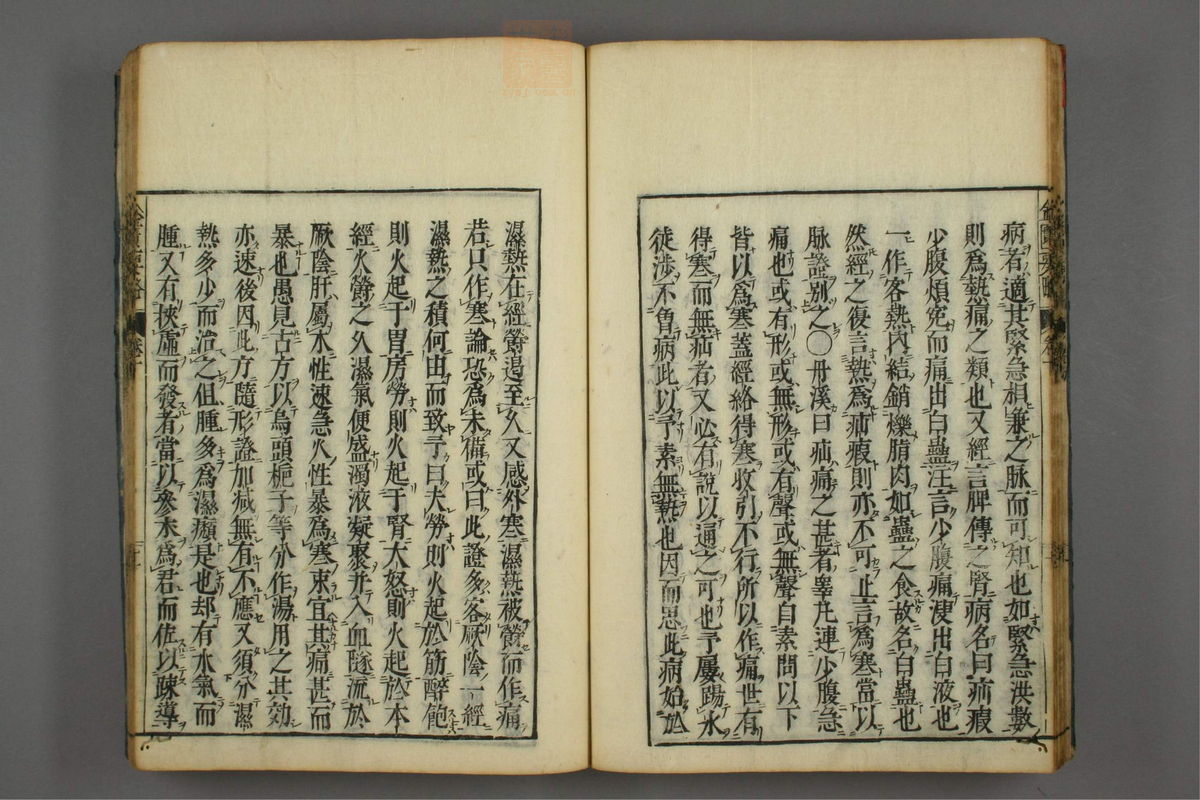 病者適其緊急相兼之脉而可知也如緊急洪數
則爲熱痛之類也又經言脾傳之腎病名曰疝瘕
少腹煩冤而痛出白蠱注言少腹痛溲出白液也
一作客熱内結銷爍脂肉如蠱之食故名白蠱也
然經之復言熱爲疝瘕則亦不可止言爲寒當以
脉證別之〇丹溪曰疝痛之甚者睾丸連少腹急
痛也或有形或無形或有聲或無聲自素問以下
皆以爲寒蓋經絡得寒收引不行所以作痛世有
得寒而無疝者又必有說以通之可也予屢踢氷
徒涉不曽病此以予素無熱也因而思此病始於
濕熱在經欝遏至久又感外寒濕熱被欝而作痛
若只作寒論恐爲未備或曰此證多客厥陰一經
濕熱之積何由而致予曰大勞則火起於筋醉飽
則火起于胃房勞則火起于腎大怒則火起於本
經火欝之久濕氣便盛濁液凝聚并入血隧流於
厥陰肝屬木性速急火性暴爲寒束宜其痛甚而
暴也愚見古方以烏頭梔子等分作湯用之其効
亦速後因此方隨形證加减無有不應又須分濕
熱多少而治之但腫多爲濕㿗是也却有水氣而
腫又有挾虚而發者當以參朮爲君而佐以疎導